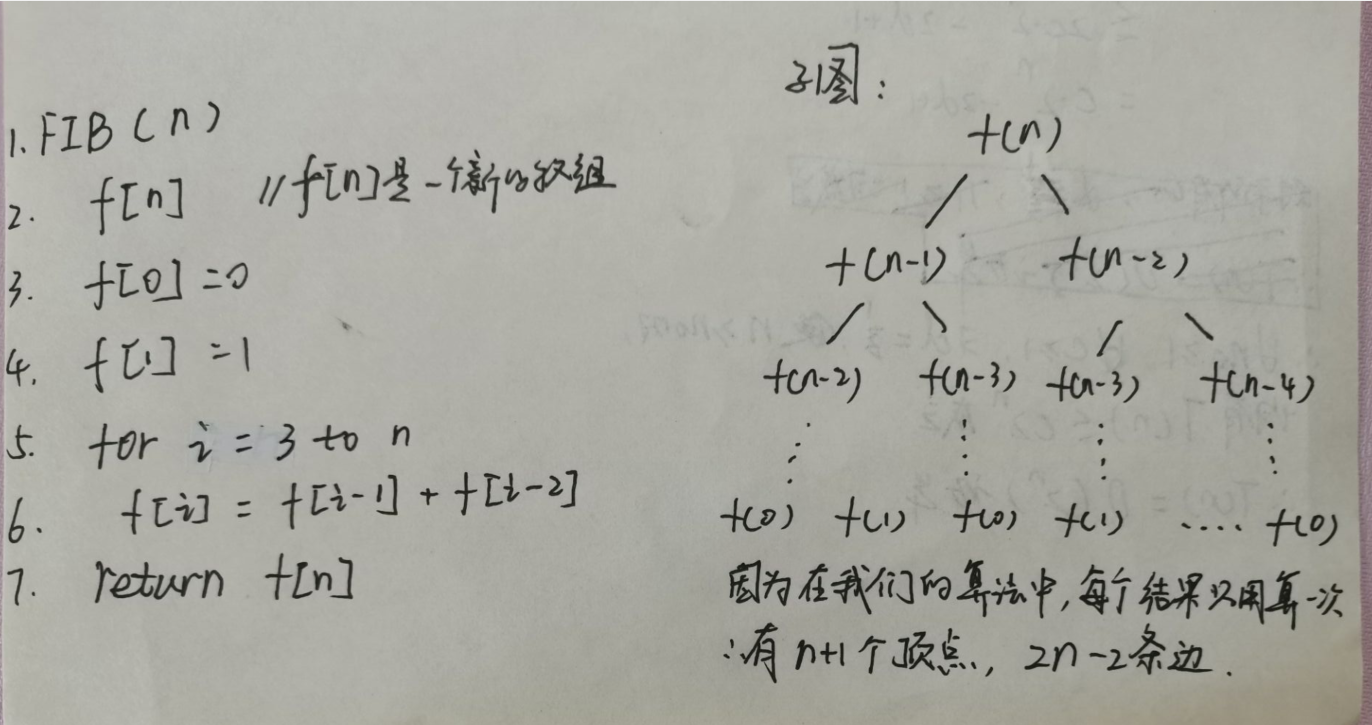 1. FIB(n)
2. f[n] //f[n]是一个新的数组
3. f[0]=0
4. f[1]=1
5. for i=3 to n
6. f[i] = f[i-1] + f[i-2]
7. return f[n]
子图:
f(n)
f(n-1) f(n-2)
f(n-2) f(n-3) f(n-3) f(n-4)
f(0) f(1) f(0) f(1) .... f(0)
因为在我们的算法中,每个结果只用算一次
∴有 n+1 个顶点, 2n-2条边.